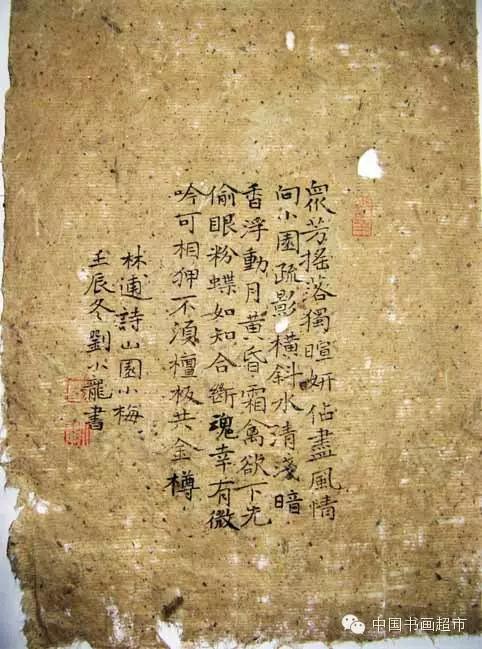 眾芳搖落獨暄妍佔盡風情
向小園疏影橫斜水清淺暗
香浮動月黃昏霜禽欲下先
偷眼粉蝶如知合斷魂幸有微
吟可相狎不須檀板共金樽
林逋詩山園小梅
壬辰冬劉小龍書
中国书画超市